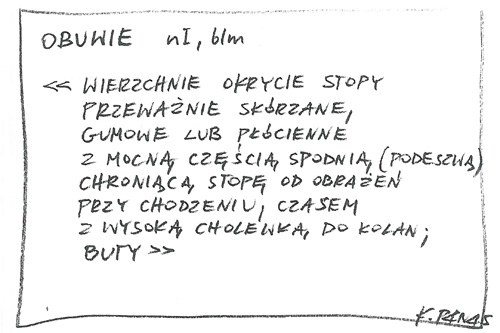 OBUWIE nI, blm
<< WIERZCHNIE OKRYCIE STOPY
PRZEWAŻNIE SKÓRZANE,
GUMOWE LUB PŁÓCIENNE
Z MOCNĄ CZĘŚCIĄ SPODNIĄ (PODESZWĄ)
CHRONIĄCĄ STOPĘ OD OBRAŻEŃ
PRZY CHODZENIU, CZASEM
Z WYSOKĄ CHOLEWKĄ DO KOLAN;
BUTY >>
K. PANAS